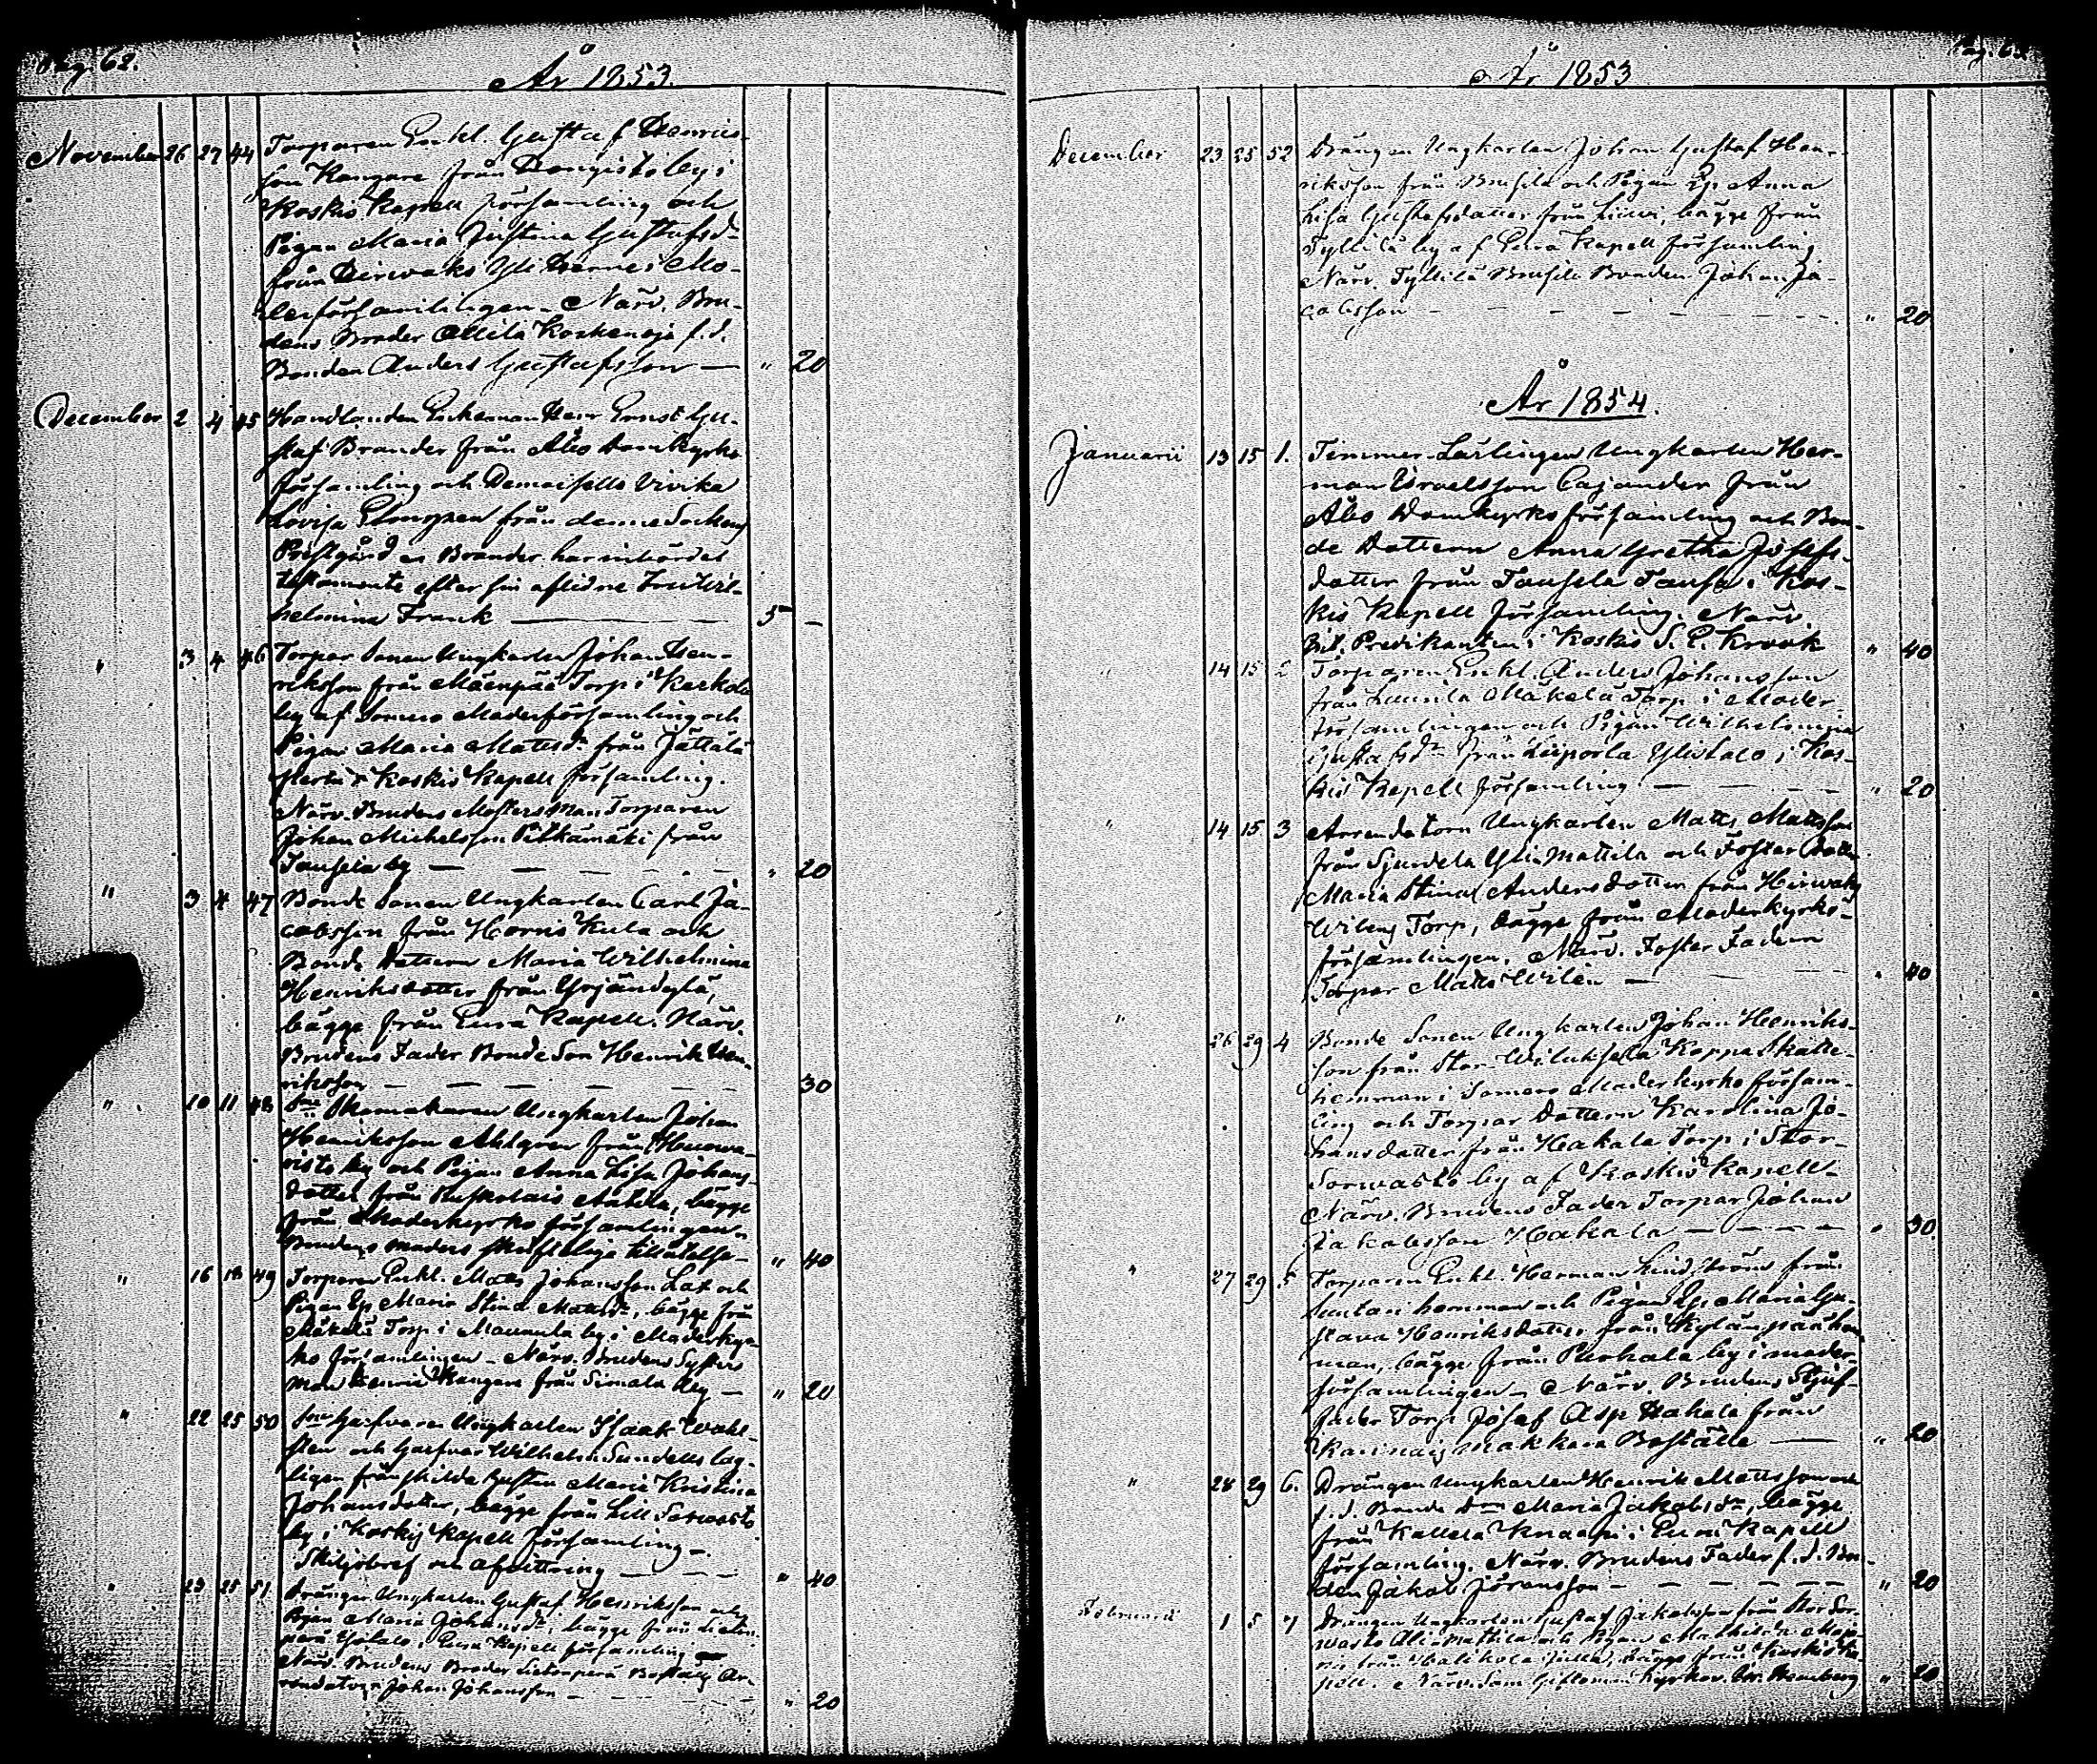 Pag. 62.
År 1853.
November 26 27 44 Torparen Enkl. Gustaf Henrics-
son Kangare från Hongisto by i
Koskis Kapell församling och
Pigan Maria Justina Gustafsd:r
från Hirwaks Yli i Mo-
derförsamlingen - Närv. Bru-
dens Broder Ollila Koskenoja f.d.
Bonden Anders Gustafsson — " 20
December 2 4 45 Handlanden Enkeman Herr Ernst Gu-
staf Brander från Åbo Domkyrko
församling och Demoiselle Vivika
Lovisa från denne Sockens
Prestgård Brander har inbördes
testamente efter sin aflidne Fru Wil-
helmina Franck — 5 —
" 3 4 46 Torpar Sonen Ungkarlen Johan Hen-
riksson från Mäenpää Torp i Kerkola
by af Somero Moderförsamling och
Pigan Maria Mattsd:r från Jättälä
i Koskis Kapell församling.
Närv. Brudens Mosters Man Torparen
Johan Michelsson Pitkämäki från
Tausela by — " 20
" 3 4 47 Bonde Sonen Ungkarlen Carl Ja-
cobsson från Hornis Kula och
Bonde Dottern Maria Wilhelmina
Henriksdotter från Yrjändylä,
bägge från Eura Kapell. Närv.
Brudens Fader Bonde Son Henrik Hen-
riksson — 30
" 10 11 48 Skomakaren Ungkarlen Johan
Henriksson Ahlgren från Huowa-
risto by och Pigan Anna Lisa Johans-
dotter från Ruskolais Antila, bägge
från Moderkyrko församlingen.
Brudens moders skriftelige tillåtelse — " 40
" 16 18 49 Torparen Enkl. Matts Johansson Lax och
Pigan Eg. Maria Stina Mattsd:r, bägge från
Mäkelä Torp i Maunula by i Moderkyr-
ko församlingen - Närv. Brudens Systers
man Henric Kangare från Simala by — " 20
" 22 25 50 Garfvaren Ungkarlen Isaak Wahl-
sten och Garfvar Wilhelm Sundells lag-
ligen frånskilda hustru Maria Kristina
Johansdotter, bägge från Lill Sorvasto
by i Koskis Kapell församling -
Skiljobref och afvittring — " 40
" 23 25 51 Drängen Ungkarlen Gustaf Henriksson och
Pigan Maria Johansd:r, bägge från Sieten-
perä Ylitalo i Eura Kapell församling —
Närv. Brudens Broder Sietenperä Boställs Ar-
rendatorn Johan Johansson — " 20
År 1853
December 23 25 52 Drängen Ungkarlen Johan Gustaf Hen-
riksson från Brusila och Pigan Eg. Anna
Lisa Gustafsdotter från Liuvi, bägge från
Tyllilä by af Eura Kapell församling
Närv. Tyllilä Brusila Bonden Johan Ja-
cobsson — " 20
År 1854.
Januarii 13 15 1. Timmer-Lärlingen Ungkarlen Her-
man Israelsson Cajander från
Åbo Domkyrko församling och Bon-
de Dottern Anna Gretha Josefs-
dotter från Tausela Tausa i Kos-
kis Kapell församling. Närv.
Bit. Predikanten i Koskis S. E. Krook " 40
" 14 15 2 Torparen Enkl. Anders Johansson
från Launila Mäkelä Torp i Moder-
församlingen och Pigan Wilhelmina
Gustafsd:r från Liiporla Ylitalo i Kos-
kis Kapell församling — " 20
" 14 15 3 Arrendatorn Ungkarlen Matts Mattsson
från Sjundela Yli-Mattila och Foster Dottern
Maria Stina Andersdotter från Hirwaks
Wilens Torp, bägge från Moderkyrko-
församlingen. Närv. Foster Fadern
Torpar Matts Wilén — " 40
" 26 29 4 Bonde Sonen Ungkarlen Johan Henriks-
son från Stor-Wiluksela Koppa Skatte-
hemman i Somero Moderkyrko försam-
ling och Torpar Dottern Karolina Jo-
hansdotter från Hakala Torp i Stor-
Sorwasto by af Koskis Kapell -
Närv. Brudens Fader Torpar Johan
Jakobsson Hakala — " 30.
" 27 29 5 Torparen Enkl. Herman Lindström från
Suutari hemman och Pigan Eg. Maria Gu-
stava Henriksdotter från Kylänpää hem-
man, bägge från Purhala by i moder-
församlingen - Närv. Brudens Styf-
fader Torp. Josef Asp Hakala från
Karinais Makkara Boställe — " 20
" 28 29 6. Drängen Ungkarlen Henrik Mattsson och
f.d. Bonde D:rn Maria Jakobsd:r, bägge
från Kallela Knaapi i Eura Kapell
församling. Närv. Brudens Fader f.d. Bon-
den Jakob Jöransson — " 20
Februarii 1 5 7 Drängen Ungkarlen Gustaf Jakobsson från Stor Sor-
wasto Ali-Mattila och Pigan Mathilda
från Halikola Jullas, bägge från Koskis Ka-
pell. Närv. Som Giftoman Kyrkov. " 20